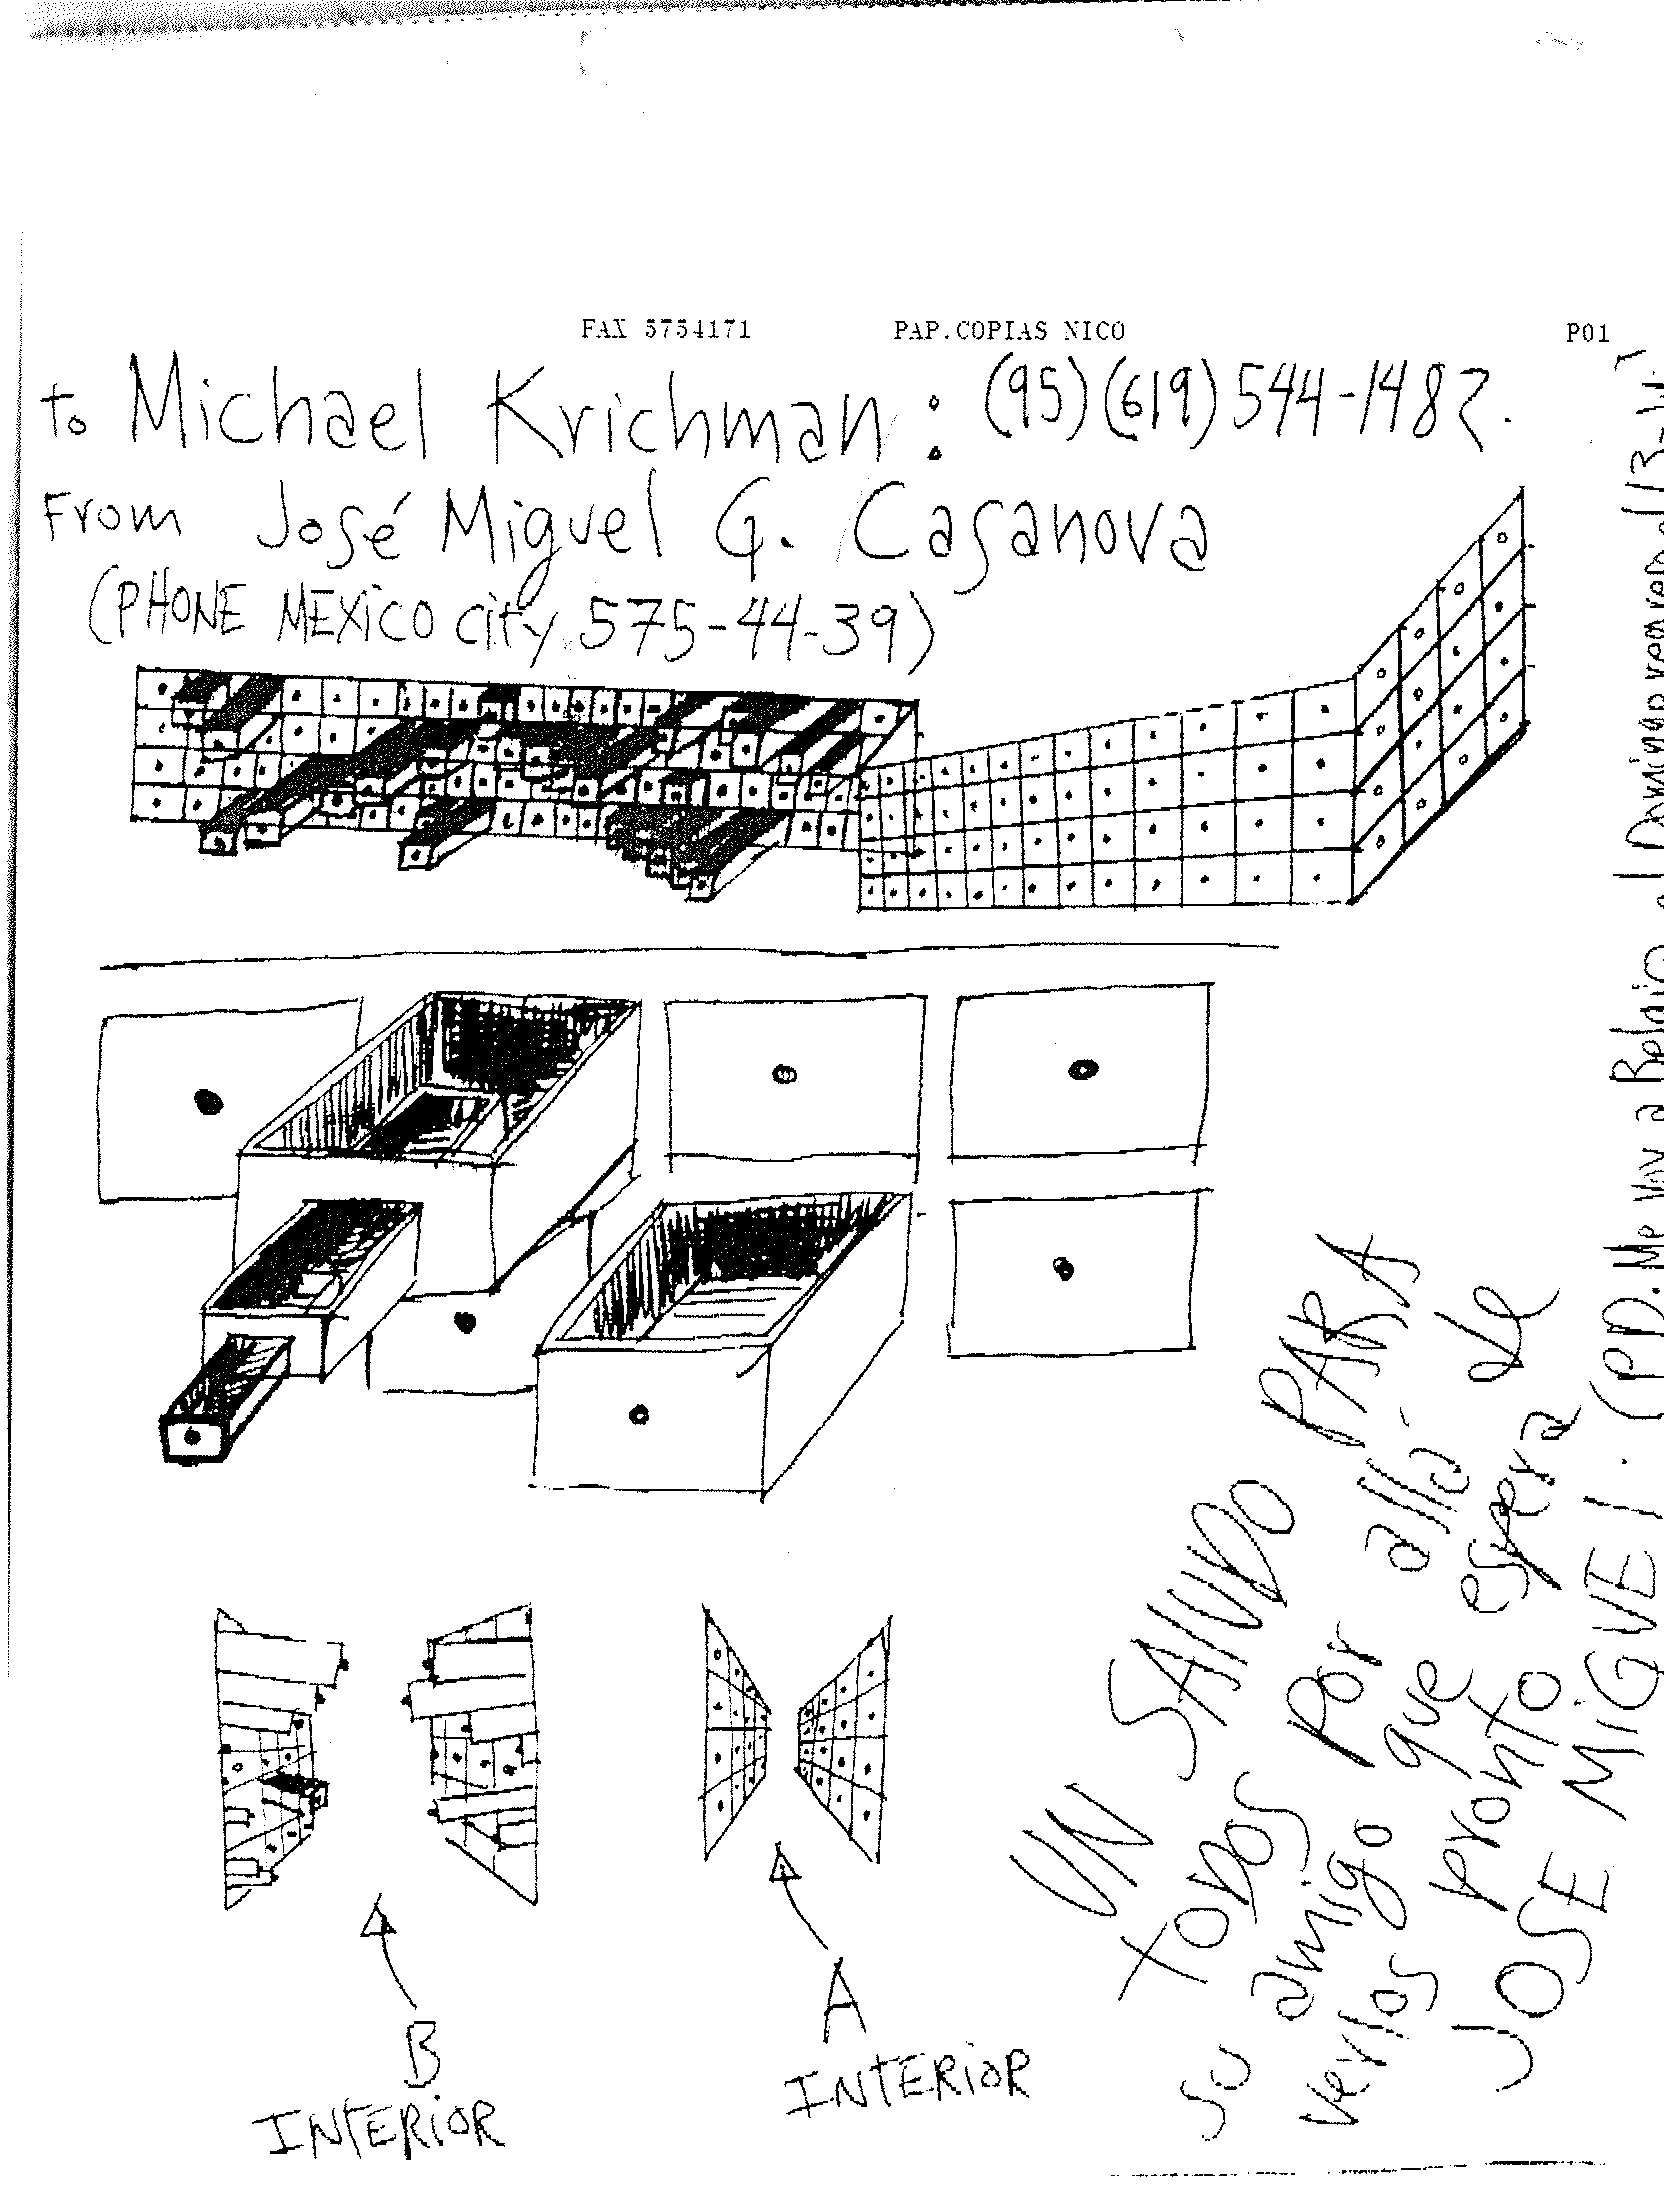 FAX 5754171 PAP.COPIAS NICO P01
to Michael Krichman : (95)(619)544-1482.
From José Miguel G. Casanova
(PHONE MEXICO city 575-44-39)
B
INTERIOR
A
INTERIOR
UN SALUDO PARA
TODOS Por allá de
su amigo que espera
verlos pronto
JOSE MIGUEL. (P.D. Me voy a Belgica el Domingo regreso el 13-